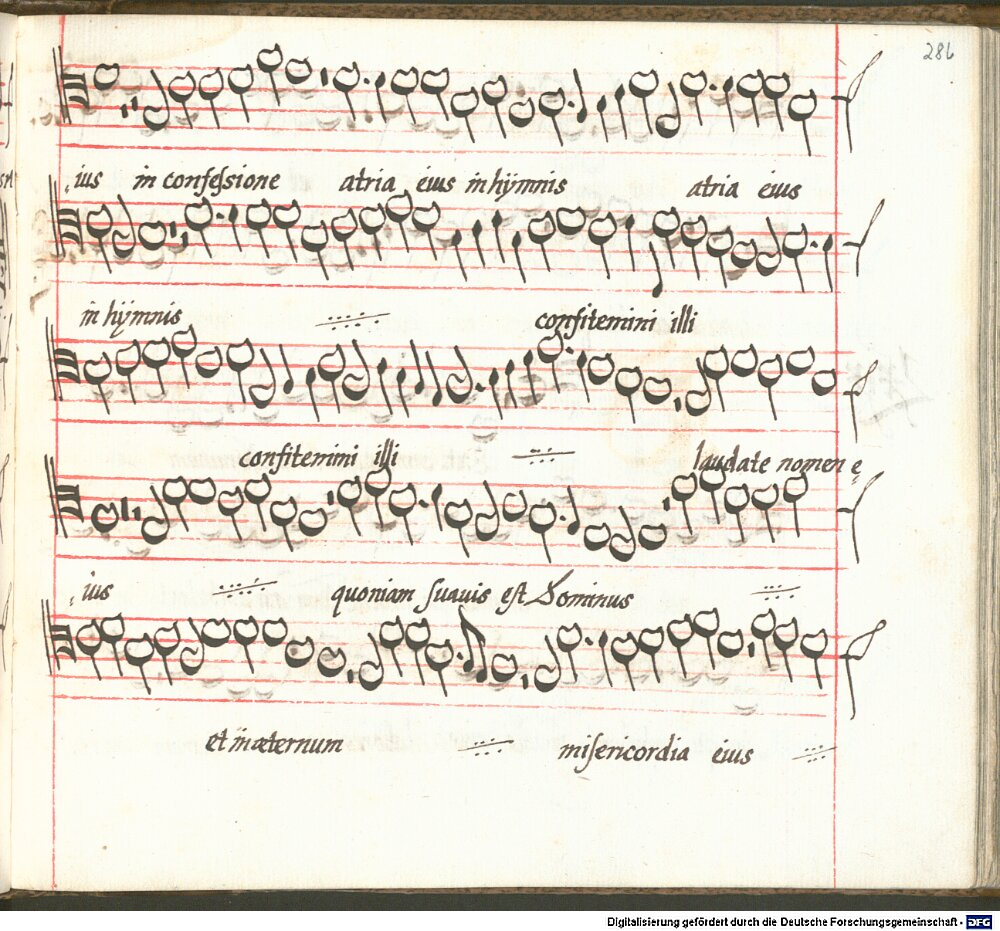 286
ius in confessione atria eius in hÿmnis atria eius
in hÿmnis confitemini illi
confitemini illi laudate nomen e
ius quoniam suauis est Dominus
et in æternum misericordia eius
Digitalisierung gefördert durch die Deutsche Forschungsgemeinschaft - DFG